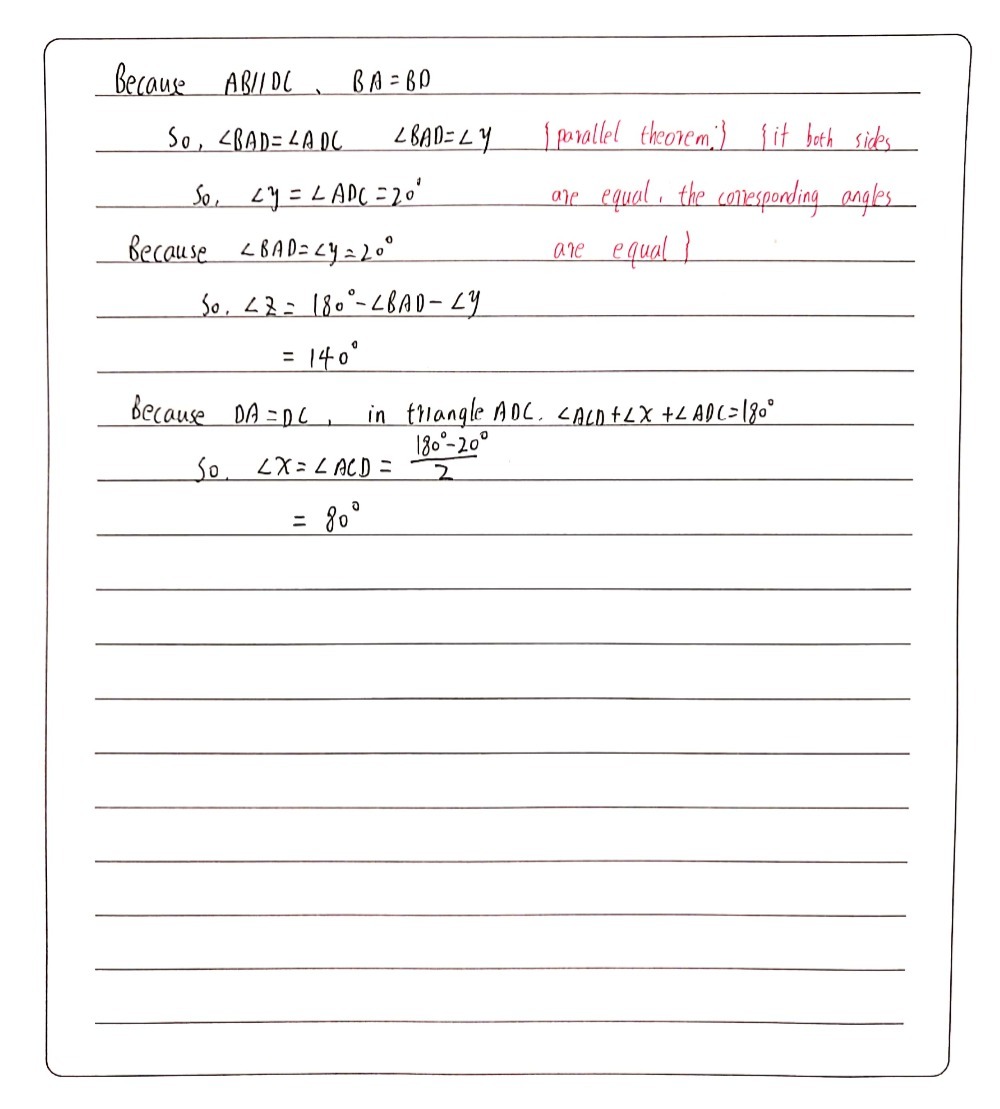 Because AB//DC、BA=BD
So, ∠BAD=∠ADC ∠BAD=∠y {parallel theorem.} {if both sides
So, ∠y=∠ADC=20° are equal, the corresponding angles
Because ∠BAD=∠y=20° are equal}
So, ∠z=180°-∠BAD-∠y
=140°
Because DA=DC, in triangle ADC. ∠ACD+∠x+∠ADC=180°
So. ∠x=∠ACD=(180°-20°)/2
=80°